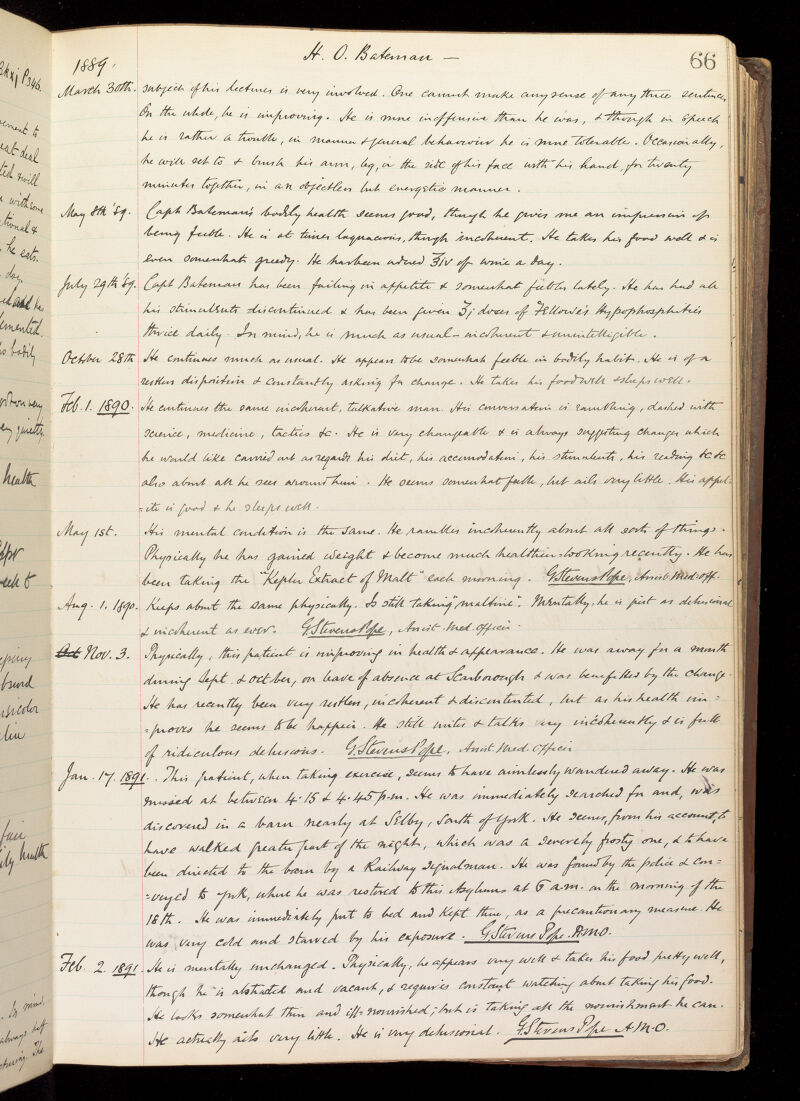 Bk xj P346.
H. O. Bateman —
66
1889.
March 30th. subject of his lectures is very involved. One cannot make any sense of any three sentences
On the whole, he is improving. He is more inoffensive than he was, & though in speech
he is rather a trouble, in manner & general behaviour he is more tolerable. Occasionally,
he will set to & brush his arm, leg, or the side of his face with his hand, for twenty
minutes together, in an objectless but energetic manner.
May 8th '89. Capt Bateman's bodily health seems good, though he gives me an impression of
being feeble. He is at times loquacious, though incoherent. He takes his food well & is
even somewhat greedy. He has been ordered ℥iv of wine a day.
July 29th '89. Capt Bateman has been failing in appetite & somewhat feebler lately. He has had all
his stimulants discontinued & has been given ʒj doses of Fellowe's Hypophosphites
thrice daily. In mind, he is much as usual – incoherent & unintelligible.
October 28th He continues much as usual. He appears to be somewhat feeble in bodily habit. He is of a
restless disposition & constantly asking for change. He takes his food well & sleeps well.
Feb. 1. 1890. He continues the same incoherent, talkative man. His conversation is rambling, dashed with
science, medicine, tactics &c. He is very changeable & is always suggesting changes which
he would like carried out as regards his diet, his accomodation, his stimulants, his reading &c &c
also about all he sees around him. He seems somewhat feeble, but ails very little. His appet-
=ite is good & he sleeps well.
May 1st. His mental condition is the same. He rambles incoherently about all sorts of things.
Physically he has gained weight & become much healthier looking recently. He has
been taking the "Kepler Extract of Malt" each morning. G. Stevens Pope, Assist. Med. off.
Aug. 1. 1890. Keeps about the same physically. Is still taking "maltine". Mentally, he is just as delusional
& incoherent as ever. G. Stevens Pope, Assist. Med. officer.
Oct Nov. 3. Physically, this patient is improving in health & appearance. He was away for a month
during Sept. & october, on leave of absence at Scarborough & was benefitted by the change.
He has recently been very restless, incoherent & discontented, but as his health im-
=proves he seems to be happier. He still writes & talks very incoherently & is full
of ridiculous delusions. G. Stevens Pope, Assist. Med. officer
Jan. 17. 1891. This patient, when taking exercise, seems to have aimlessly wandered away. He was
missed at between 4.15 & 4.45 p.m. He was immediately searched for and, was
discovered in a barn nearly at Selby, South of York. He seems, from his account, to
have walked greater part of the night, which was a severely frosty one, & to have
been directed to the barn by a Railway signalman. He was found by the police & con-
=veyed to York, where he was restored to this Asylum at 6 a.m. on the morning of the
18th. He was immediately put to bed and kept there, as a precautionary measure. He
was very cold and starved by his exposure. G. Stevens Pope. A.M.O.
Feb. 2. 1891. He is mentally unchanged. Physically, he appears very well & takes his food pretty well,
though he is abstracted and vacant, & requires constant watching about taking his food.
He looks somewhat thin and ill-nourished; but is taking all the nourishment he can.
He actually ails very little. He is very delusional. G. Stevens Pope A.M.O.